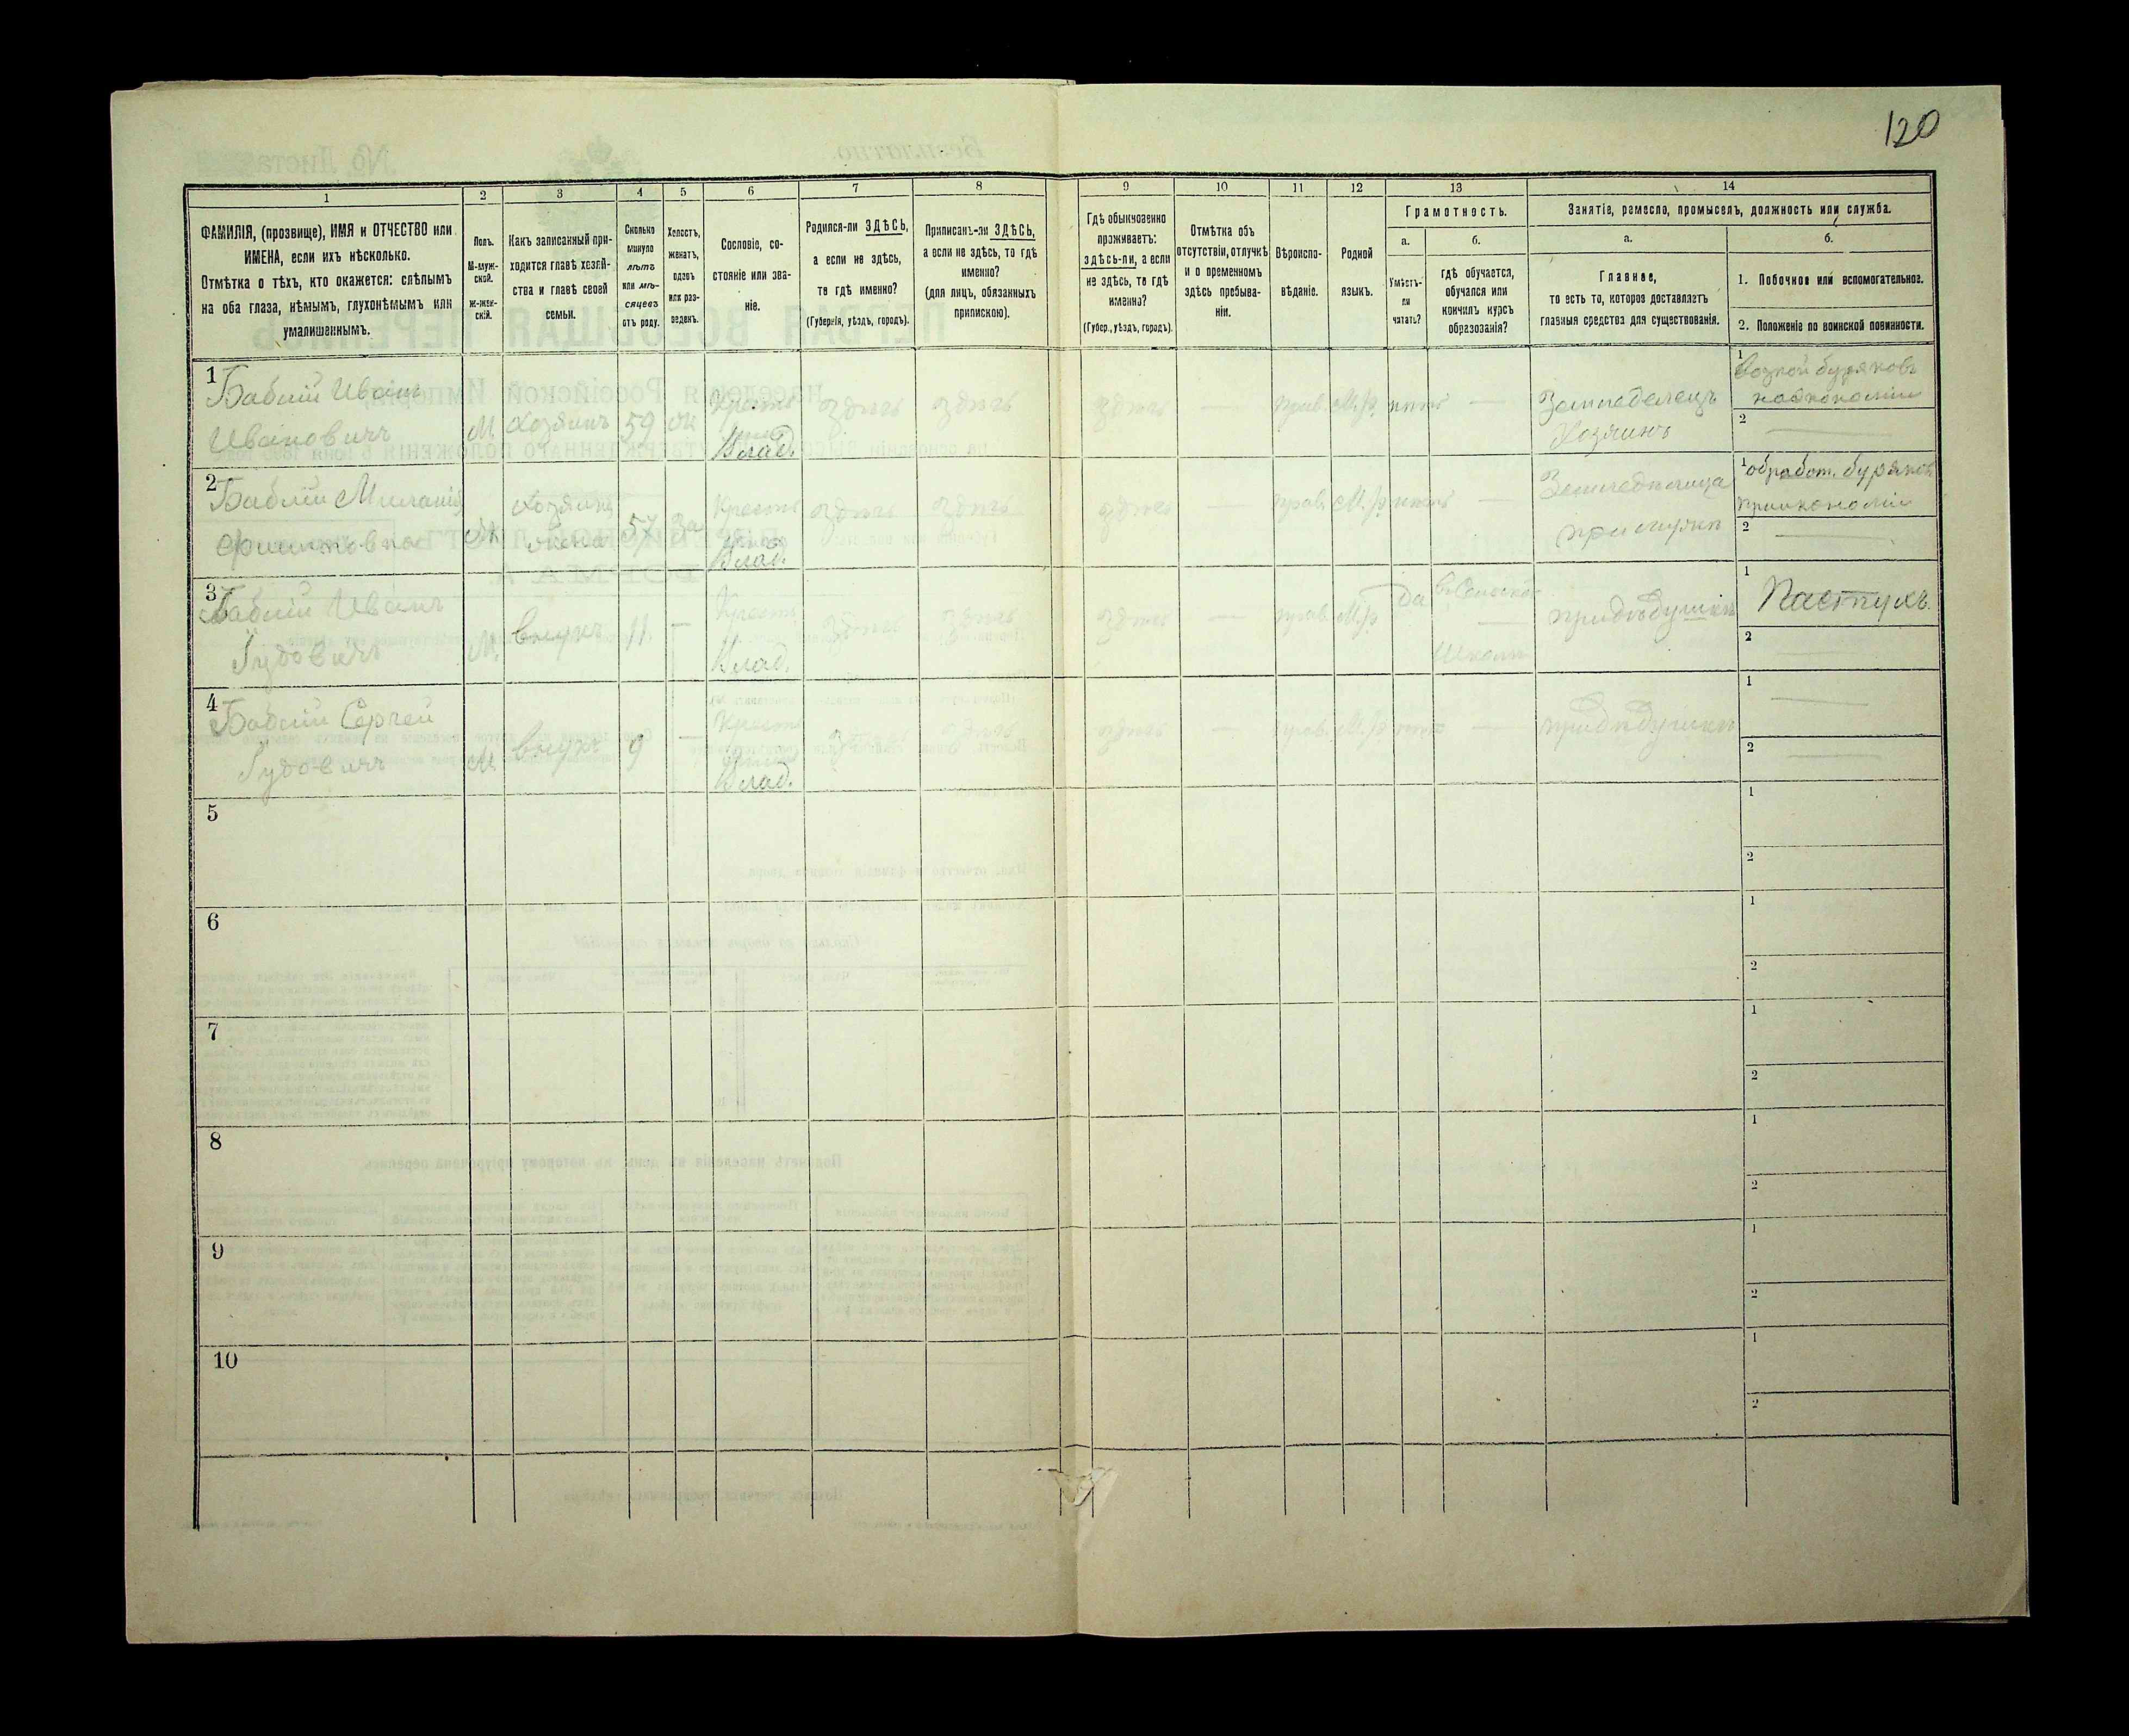 120
1
2
3
4
5
6
7
8
9
10
11
12
13
14
ФАМИЛІЯ, (прозвище), ИМЯ и ОТЧЕСТВО или
ИМЕНА, если ихъ нѣсколько.
Отмѣтка о тѣхъ, кто окажется: слѣпымъ
на оба глаза, нѣмымъ, глухонѣмымъ или
умалишеннымъ.
Полъ.
М-муж-
ской.
Ж-жен-
скій.
Какъ записанный при-
ходится главѣ хозяй-
ства и главѣ своей
семьи.
Сколько
минуло
лѣтъ
или мѣ-
сяцевъ
отъ роду.
Холостъ,
женатъ,
вдовъ
или раз-
веденъ.
Сословіе, со-
стояніе или зва-
ніе.
Родился-ли ЗДѢСЬ,
а если не здѣсь,
то гдѣ именно?
(Губернія, уѣздъ, городъ).
Приписанъ-ли ЗДѢСЬ,
а если не здѣсь, то гдѣ
именно?
(для лицъ, обязанныхъ
припискою).
Гдѣ обыкновенно
проживаетъ:
здѣсь-ли, а если
не здѣсь, то гдѣ
именно?
(Губер., уѣздъ, городъ).
Отмѣтка объ
отсутствіи, отлучкѣ
и о временномъ
здѣсь пребыва-
ніи.
Вѣроиспо-
вѣданіе.
Родной
языкъ.
Грамотность.
а.
Умѣетъ-
ли
читать?
б.
гдѣ обучается,
обучался или
кончилъ курсъ
образованія?
Занятіе, ремесло, промыселъ, должность или служба.
а.
Главное,
то есть то, которое доставляетъ
главныя средства для существованія.
б.
1. Побочное или вспомогательное.
2. Положеніе по воинской повинности.
1
Бабій Иванъ
Ивановичъ
М
Хозяинъ
59
Ж
Крестн
Влад.
здѣсь
здѣсь
здѣсь
—
прав.
М.р.
нѣтъ
—
Земледелецъ
Хозяинъ
1
возкой буряковъ
2
2
Бабій Миланія
Филиповна
Ж
Хозяйка
жена
57
За
Крестн
Влад.
здѣсь
здѣсь
здѣсь
—
прав.
М.р.
нѣтъ
—
при мужи
1
обработ. буряков
приикономіи
2
3
Бабій Иванъ
М.
внукъ
11.
—
Крестн
Влад.
здѣсь
здѣсь
здѣсь
—
прав.
М.р.
Да
—
Школѣ
придѣдушкѣ
1
Пастухъ.
2
4
Бабій Сергей
М
внукъ
9
—
Крестн
Влад.
здѣсь
здѣсь
здѣсь
—
прав.
М.р.
нѣтъ
—
придѣдушкѣ
1
2
5
1
2
6
1
2
7
1
2
8
1
2
9
1
2
10
1
2